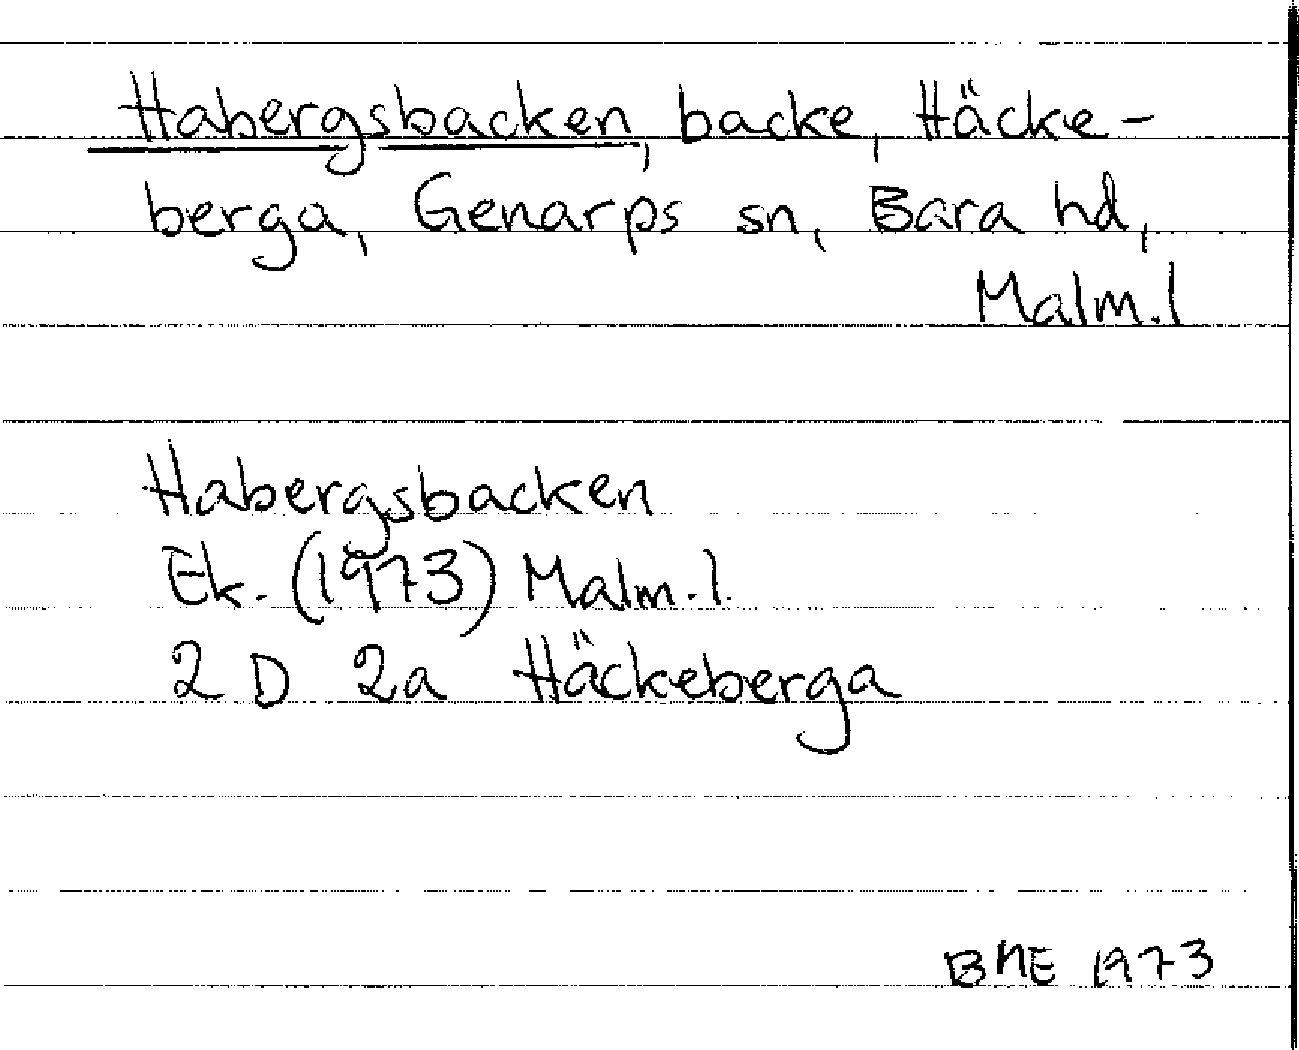 Habergsbacken, backe, Häcke-
berga, Genarps sn, Bara hd,
Malm.l
Habergsbacken
Ek. (1973) Malm.l.
2 D 2a Häckeberga
BME 1973